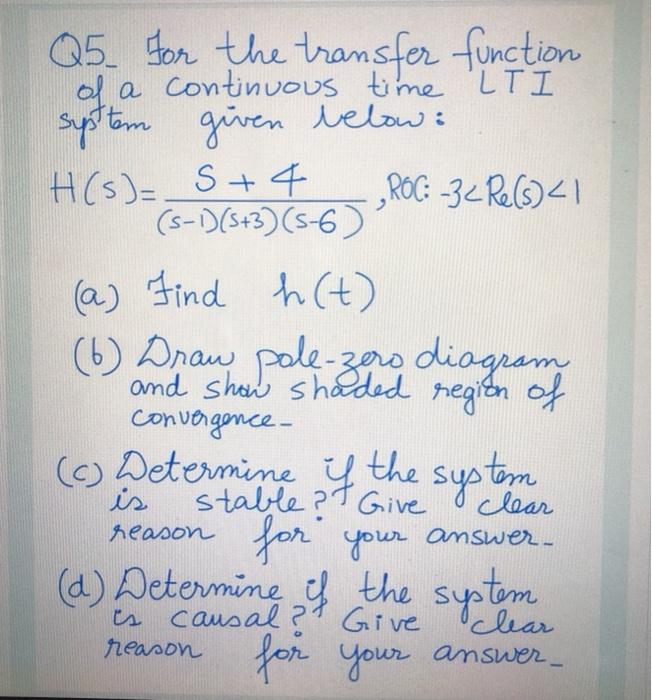 Q5_ For the transfer function
of a continuous time LTI
system given below:
H(s)= S + 4 / (s-1)(s+3)(s-6) , ROC: -3 < Re(s) < 1
(a) Find h(t)
(b) Draw pole-zero diagram
and show shaded region of
convergence_
(c) Determine if the system
is stable? Give clear
reason for your answer_
(d) Determine if the system
is causal? Give clear
reason for your answer_